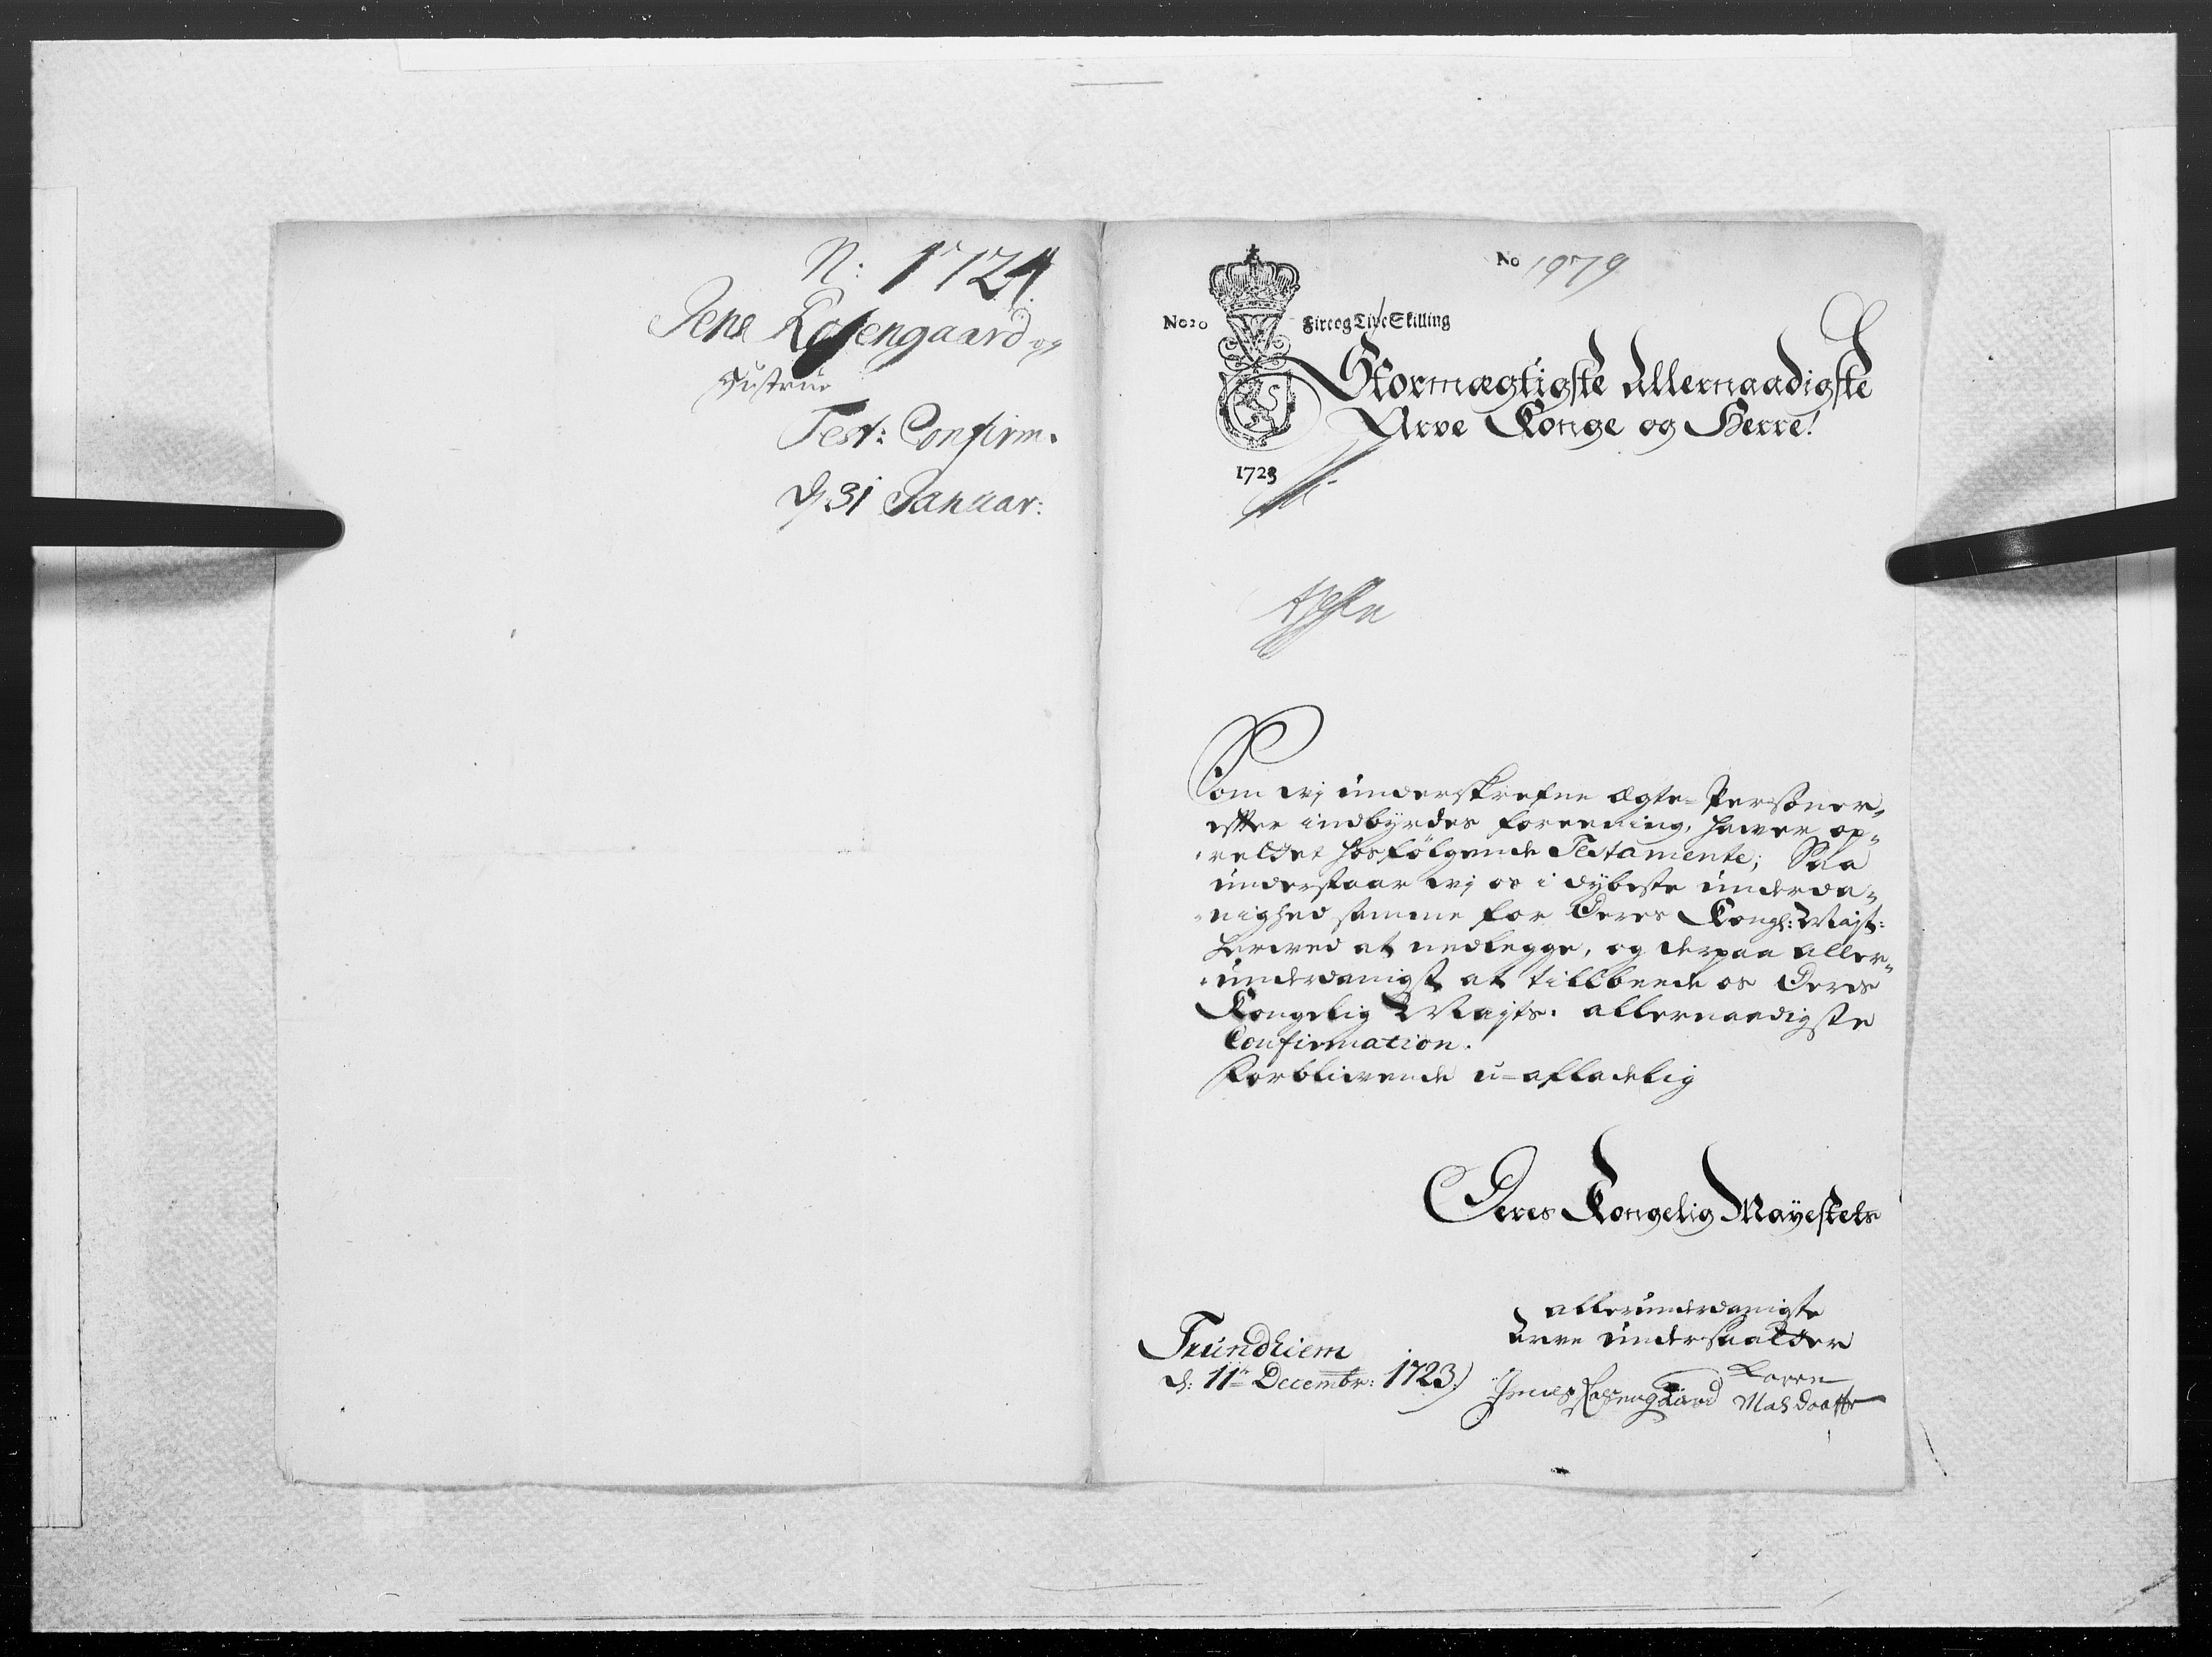 N: 1724
Jens Rosengaard og
Hustrue
Test: Confirm.
d 31 Januar:
No 1979
No 20 Fire og Tive Skilling
Stormægtigste Allernaadigste
Arve Konge og Herre!
1723
Som wj underskrefne ægte-Persöner,
efter indbyrdes foreening, hawer op-
rettet hosfölgende Testamente; Saa
understaar wj os i dybeste underda-
nighed samme for Deres Kongl: Majts:
herwed at nedlegge, og derpaa aller-
underdanigst at tillbeede os Deres
Kongelig Mayts. allernaadigste
Confirmation.
Forbliwende u-afladelig
Deres Kongelig Mayestets
allerunderdanigste
Arve undersaatter
Trundhiem
d: 11te Decembr: 1723.
Jens Rosengaard
Karen